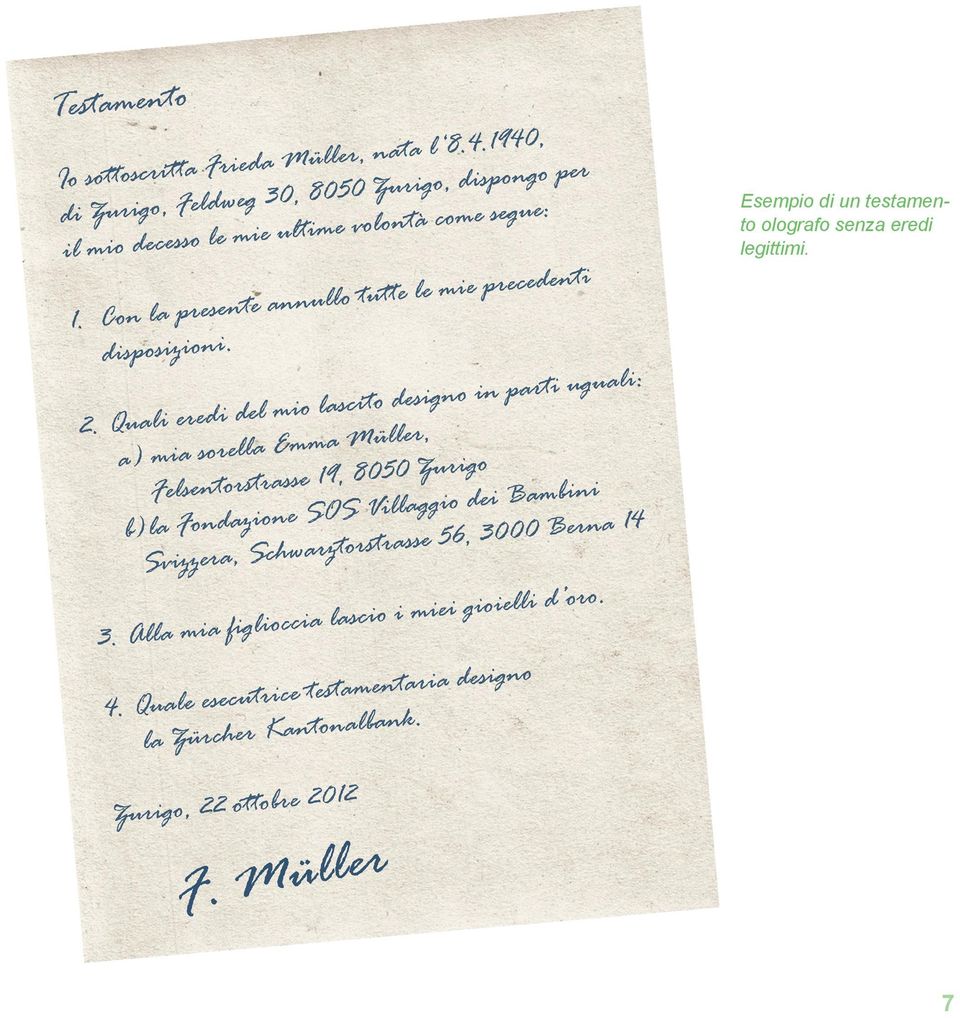 Testamento
Io sottoscritta Frieda Müller, nata l‘8.4.1940,
di Zurigo, Feldweg 30, 8050 Zurigo, dispongo per
il mio decesso le mie ultime volontà come segue:
1. Con la presente annullo tutte le mie precedenti
disposizioni.
2. Quali eredi del mio lascito designo in parti uguali:
a) mia sorella Emma Müller,
Felsentorstrasse 19, 8050 Zurigo
b) la Fondazione SOS Villaggio dei Bambini
Svizzera, Schwarztorstrasse 56, 3000 Berna 14
3. Alla mia figlioccia lascio i miei gioielli d’oro.
4. Quale esecutrice testamentaria designo
la Zürcher Kantonalbank.
Zurigo, 22 ottobre 2012
F. Müller
Esempio di un testamen-
to olografo senza eredi
legittimi.
7